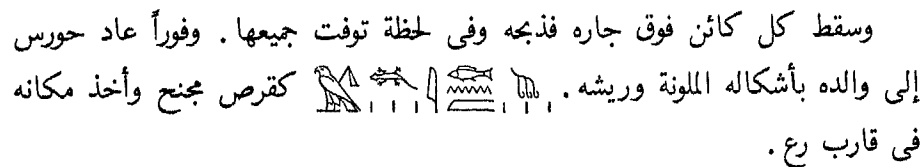 وسقط كل كائن فوق جاره فذبحه وفى لحظة توفت جميعها. وفوراً عاد حورس
إلى والده بأشكاله الملونة وريشه. كقرص مجنح وأخذ مكانه
فى قارب رع.